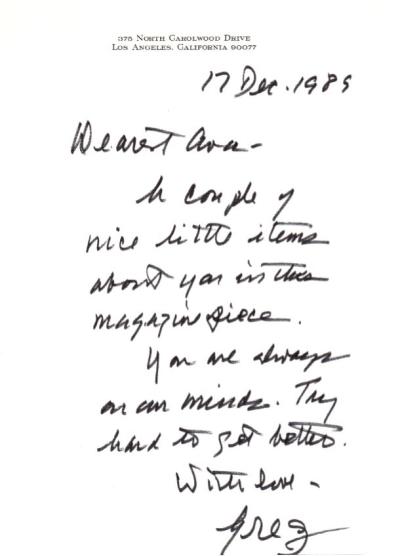 375 North Carolwood Drive
Los Angeles, California 90077
17 Dec. 1989
Dearest Ava-
A couple of
nice little items
about you in this
magazine piece.
You are always
on our minds. Try
hard to get better.
With love -
Greg